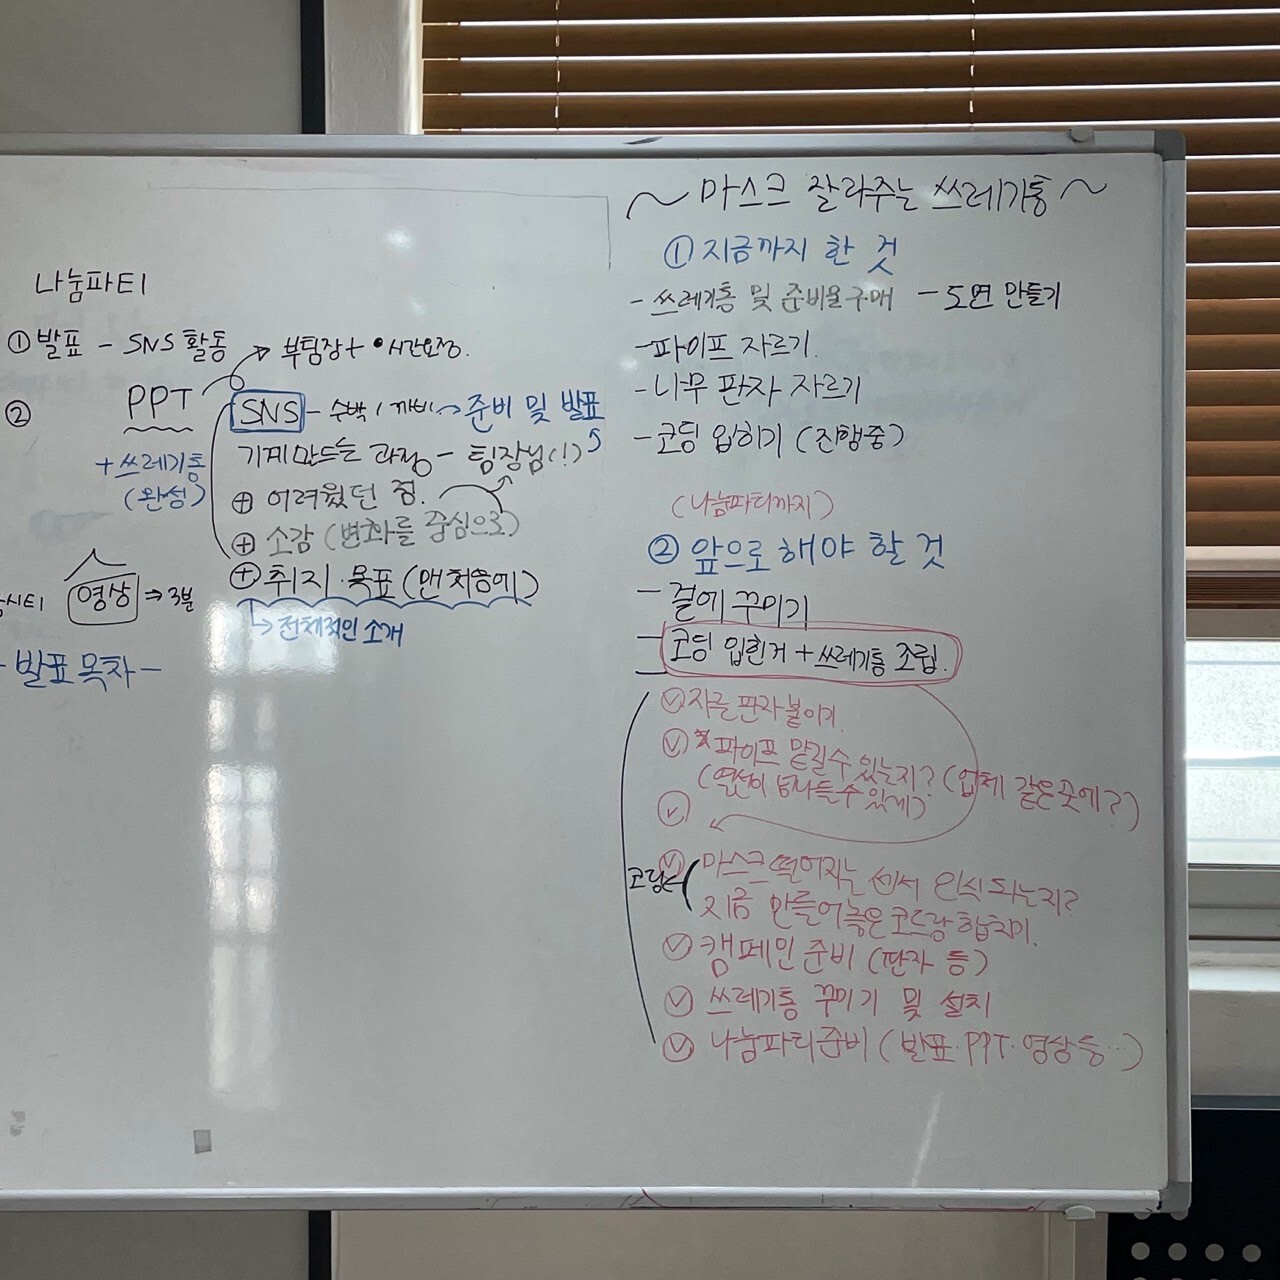 나눔파티
① 발표 - SNS 활동
부팀장 + • 시간요정.
② PPT
+ 쓰레기통
(완성)
SNS - 수박 / 까비 → 준비 및 발표
기계만드는 과정 - 팀장님(!)
⊕ 어려웠던 점.
⊕ 소감 (변화를 중심으로)
⊕ 취지·목표 (맨 처음에)
↳ 전체적인 소개
영상 ⇒ 3분
- 발표 목차 -
~ 마스크 잘라주는 쓰레기통 ~
① 지금까지 한 것
- 쓰레기통 및 준비물 구매 - 도면 만들기
- 파이프 자르기.
- 나무 판자 자르기
- 코딩 입히기 (진행중)
(나눔파티까지)
② 앞으로 해야 할 것
- 겉에 꾸미기
코딩 입힌거 + 쓰레기통 조립.
자른 판자 붙이기.
* 파이프 맡길 수 있는지? (업체 같은 곳에?)
(열선이 넘나들 수 있게)
코딩
마스크 떨어지는 센서 인식 되는지?
지금 만들어놓은 코드랑 합치기.
캠페인 준비 (판자 등)
쓰레기통 꾸미기 및 설치
나눔파티 준비 (발표·PPT·영상 등...)